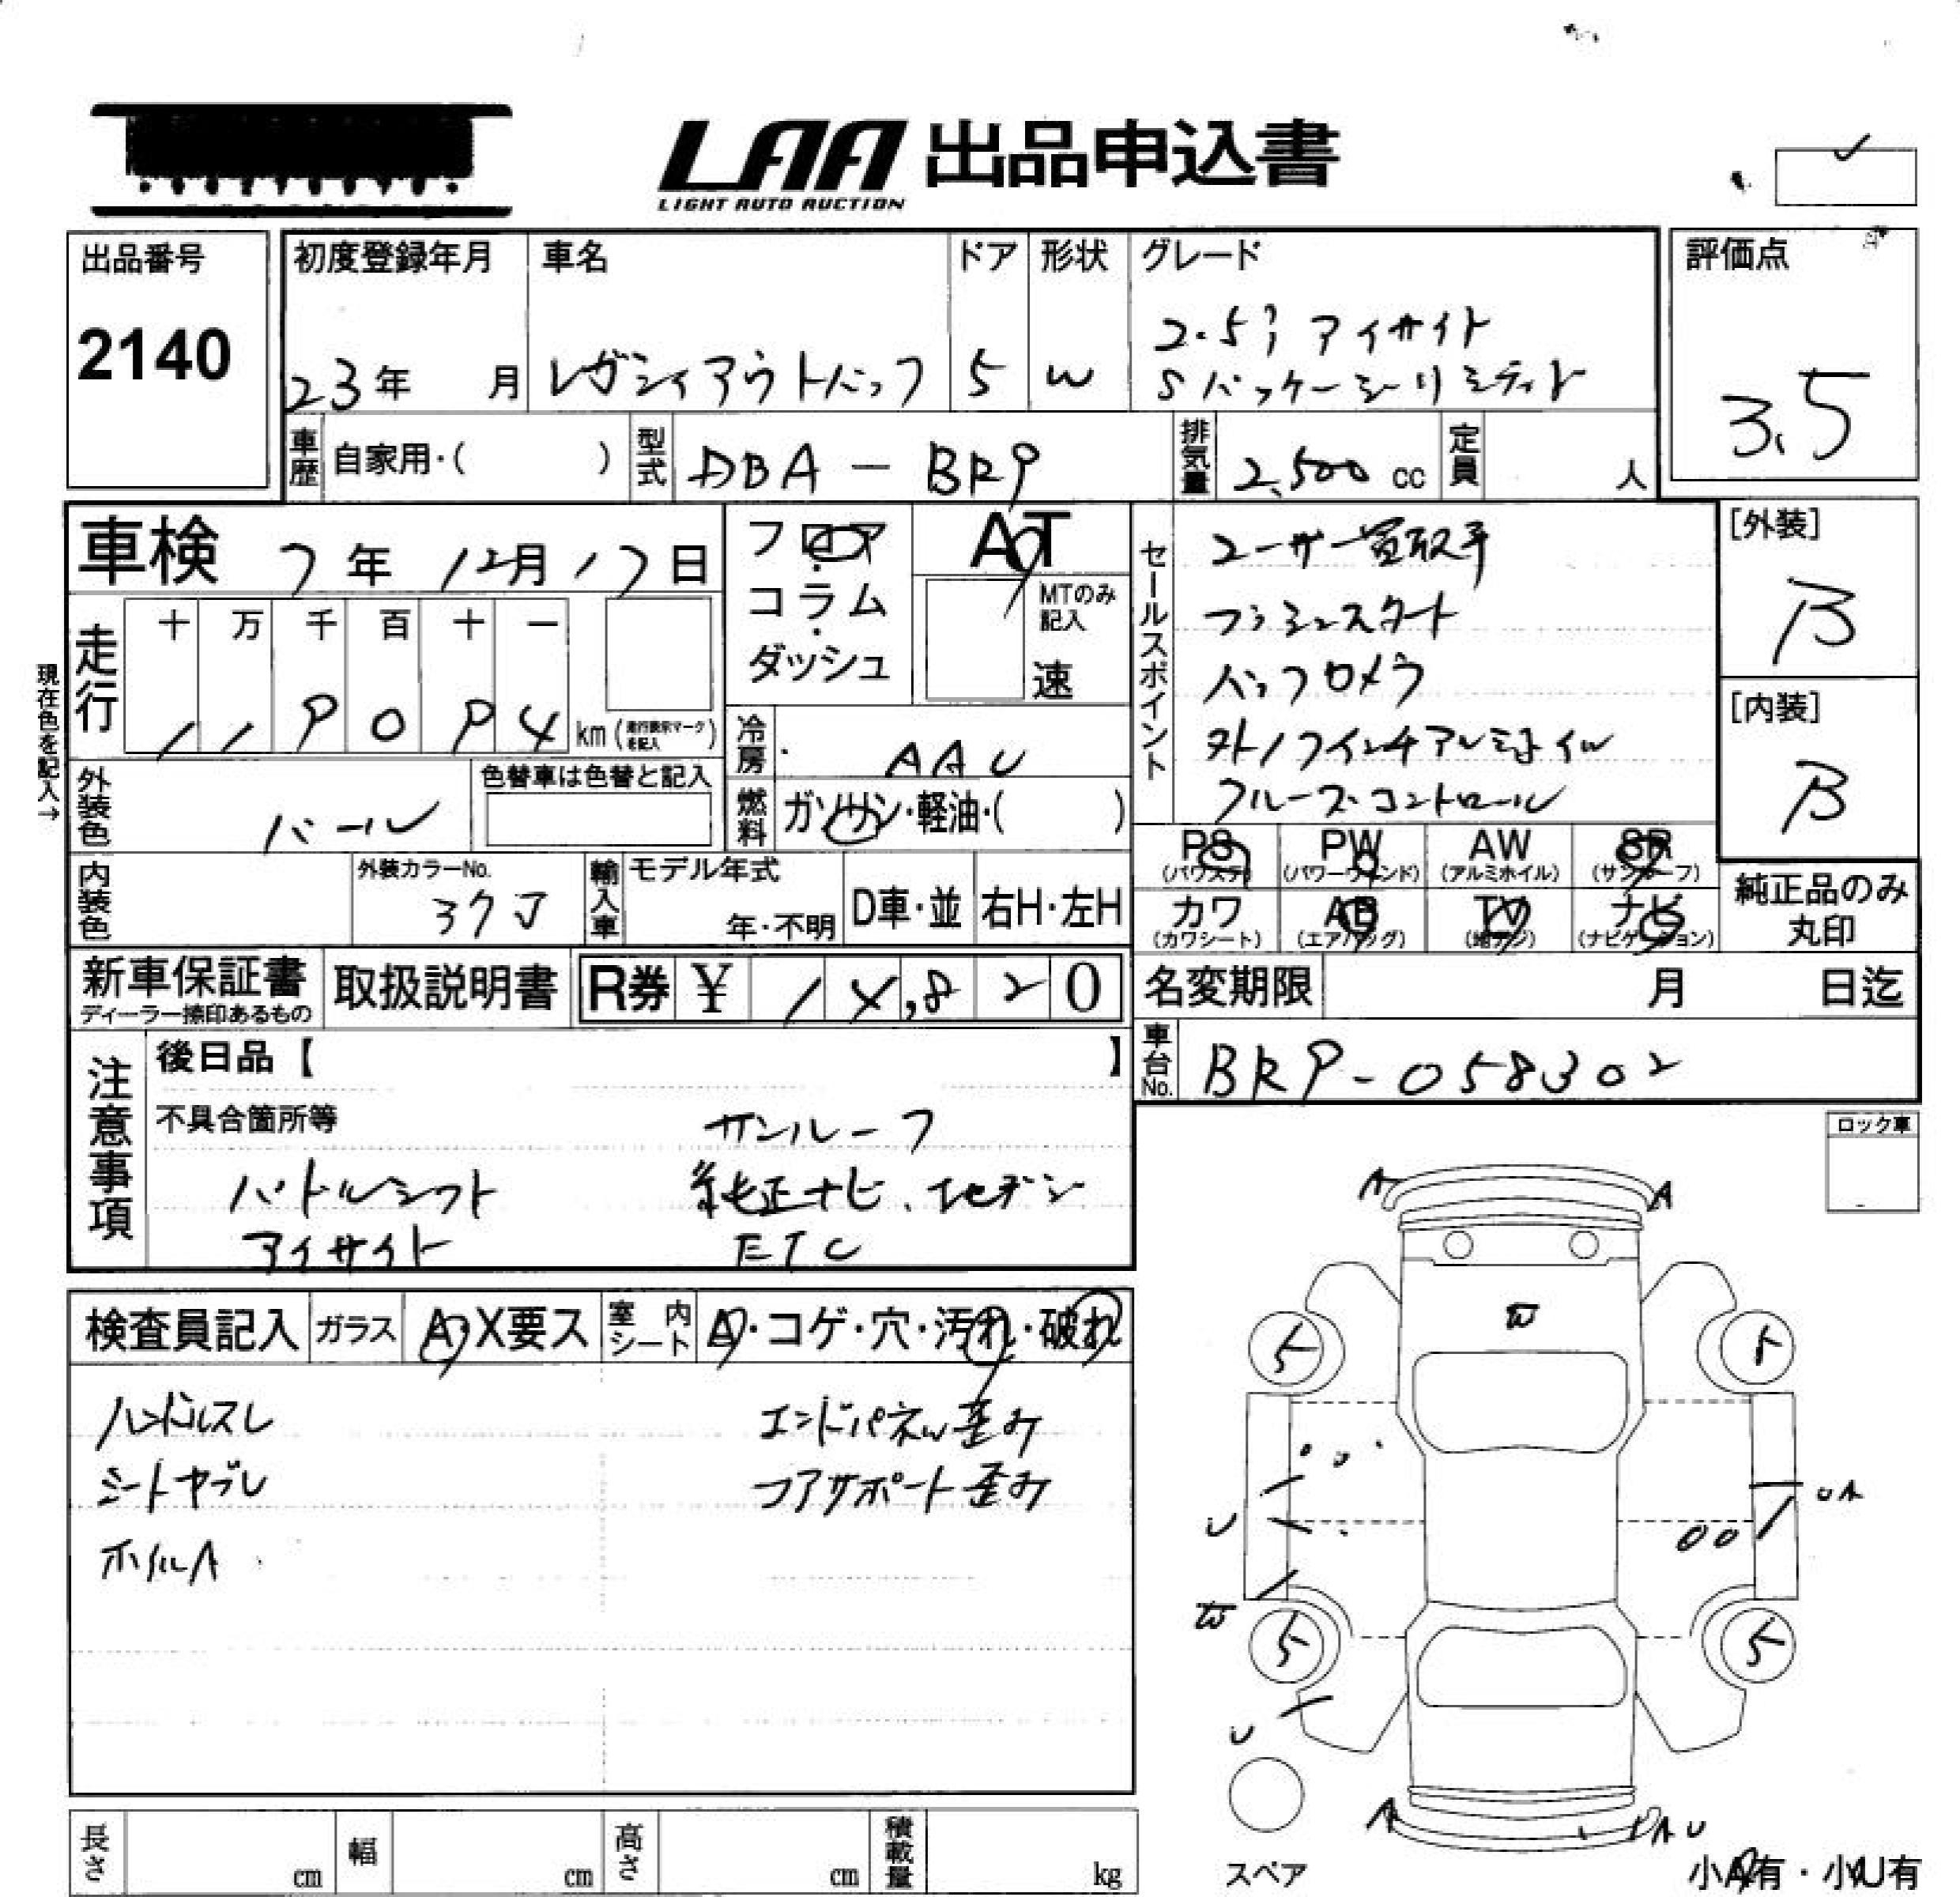 LAA 出品申込書
LIGHT AUTO AUCTION
出品番号
2140
初度登録年月
23年 月
車名
レガシィアウトバック
ドア
5
形状
W
グレード
2.5i アイサイト
Sパッケージリミテッド
評価点
3.5
車歴 自家用・( )
型式 DBA - BR9
排気量 2,500 cc
定員 人
車検 7年 12月 17日
フロア・コラム・ダッシュ
AT
MTのみ記入
速
セールスポイント
ユーザー買取車
プッシュスタート
バックカメラ
外17インチアルミホイル
クルーズコントロール
[外装]
B
[内装]
B
現在色を記入→
走行 十 万 千 百 十 一
1 1 9 0 9 4 km (走行表示マークを記入)
冷房 AAC
燃料 ガソリン・軽油・( )
外装色 パール
色替車は色替と記入
内装色
外装カラーNo.
37J
輸入車 モデル年式
年・不明
D車・並
右H・左H
PS (パワステ)
PW (パワーウィンド)
AW (アルミホイル)
SR (サンルーフ)
カワ (カワシート)
AB (エアバッグ)
TV (地デジ)
ナビ (ナビゲーション)
純正品のみ丸印
新車保証書
ディーラー捺印あるもの
取扱説明書
R券 ¥ 1 4,8 2 0
名変期限 月 日迄
車台No. BR9-058302
注意事項
後日品【 】
不具合箇所等
サンルーフ
パドルシフト
純正ナビ、フルセグデジ
アイサイト
ETC
ロック車
検査員記入 ガラス A・X要ス
室内シート A・コゲ・穴・汚れ・破れ
ハンドルスレ
エンドパネル歪み
シートヤブレ
コアサポート歪み
ホイルA
A
A
W
5
5
U
UA
W
5
5
U
A
AU
スペア
小A有・小U有
長さ cm
幅 cm
高さ cm
積載量 kg